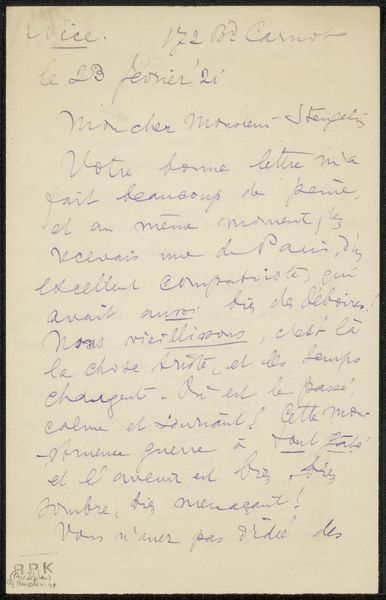 Nice. 172 Bd Carnot
le 23 février '21
Mon cher Monsieur Stengelin
Votre bonne lettre m'a
fait beaucoup de peine,
et au même moment, j'en
recevais une de Paris, d'un
excellent compatriote, qui
avait aussi bien des déboires!
Nous vieillissons, c'est là
la chose triste, et les temps
changent. Où est le passé,
calme et souriant! Cette mon-
-strueuse guerre a tout gâté
et l'avenir est bien, bien
sombre, bien menaçant!
Vous n'avez pas d'idée des
R.P.K